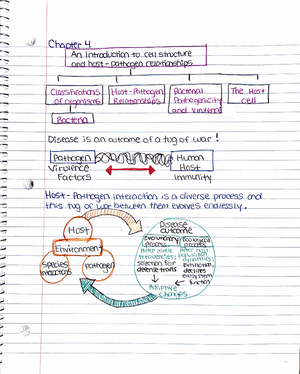 Chapter 4
An Introduction to cell structure
and host-Pathogen relationships
Classifications
of organisms
Host-Pathogen
Relationships
Bacterial
Pathogenicity
and Virulence
The Host
cell
Bacteria
Disease is an outcome of a tug of war!
Pathogen
Virulence
Factors
Human
Host
Immunity
Host-Pathogen interaction is a diverse process and
this tug of war between them evolves endlessly.
Host
Environment
Species
interactions
Pathogen
Disease
outcome
Evolutionary
process
Ecological
process
After allele
frequencies;
selection for
defense traits
After host
population
dynamics;
extinction,
declines
ecosystem
function
Adaptive
Changes